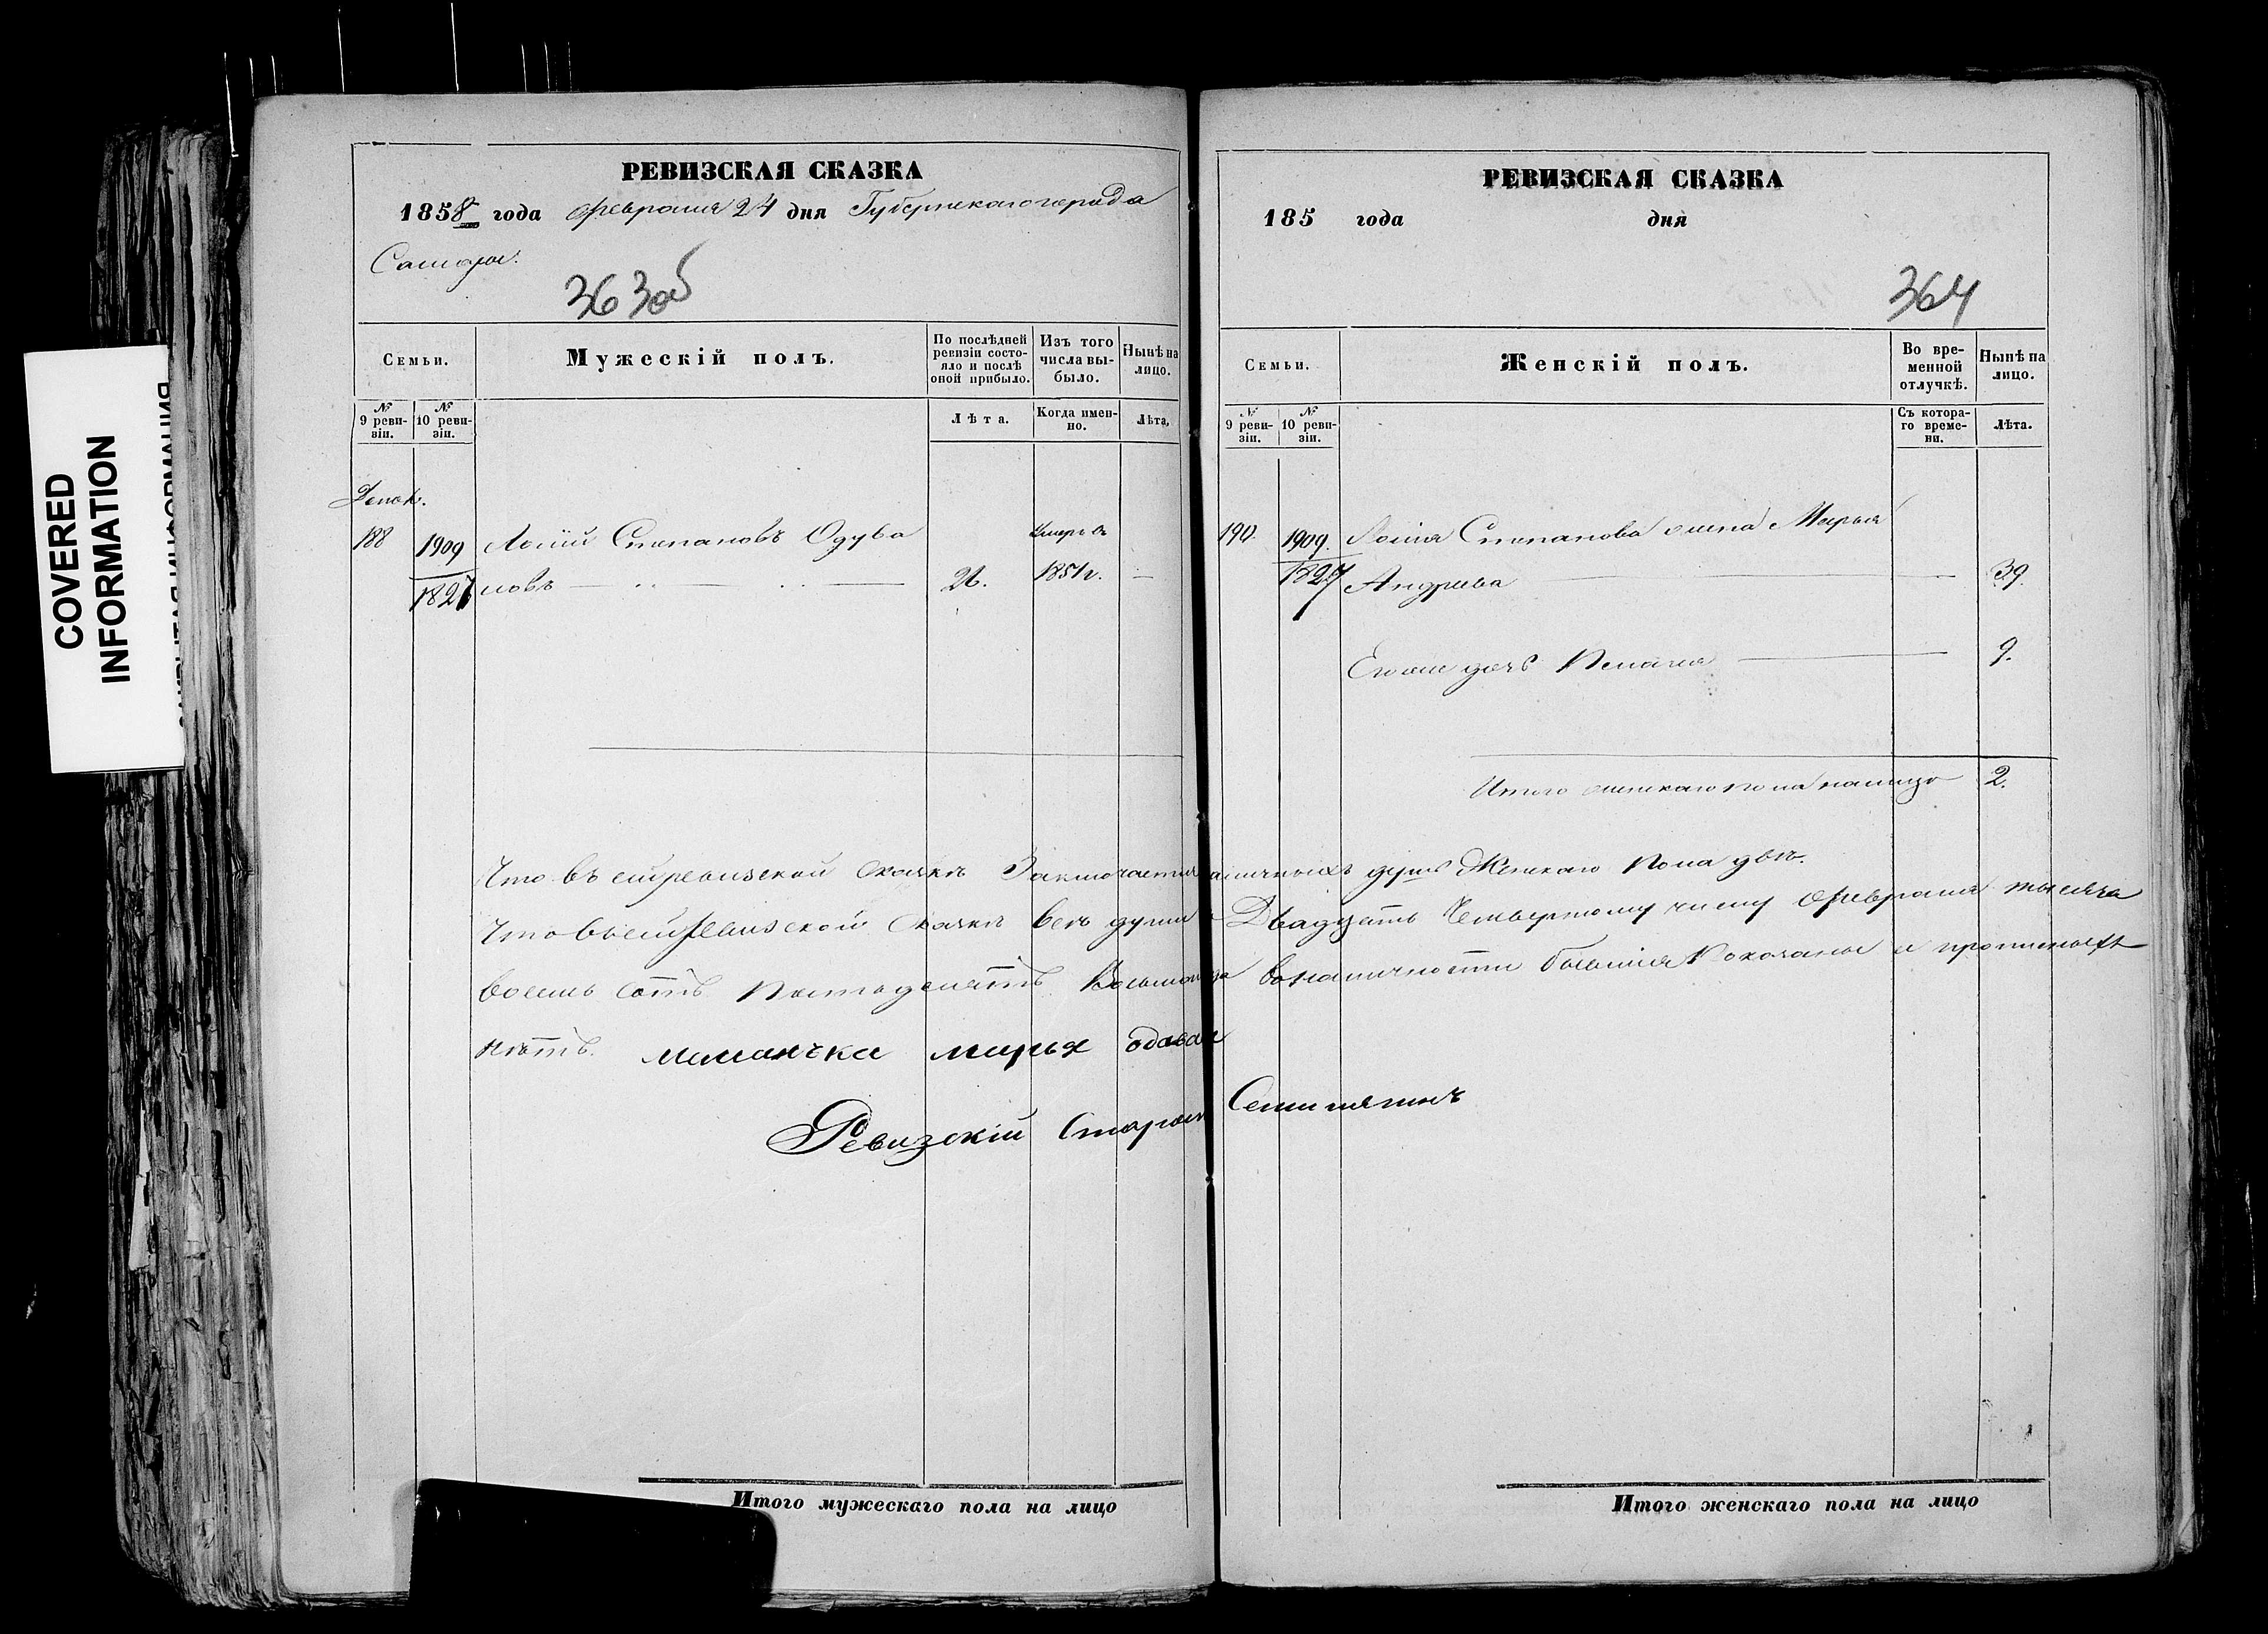 COVERED
INFORMATION
РЕВИЗСКАЯ СКАЗКА
1858 года февраля 24 дня Губернскаго города
Самары.
363 об
Семьи.
Мужескій полъ.
По послѣдней ревизіи состояло и послѣ оной прибыло.
Изъ того числа выбыло.
Нынѣ на лицо.
№ 9 ревизіи.
№ 10 ревизіи.
Лѣта.
Когда именно.
Лѣта,
188 1909 Степановъ Одува Умеръ въ
1827 новъ 1851г.
Что въ сей ревизской сказкѣ Заключается
Что въ сей Ревизской Сказкѣ всѣ души
восемь сотъ Пятьдесятъ Восьмаго
нѣтъ. мещанка марья
Ревизскій Старос
РЕВИЗСКАЯ СКАЗКА
185 года дня
364
Семьи.
Женскій полъ.
Во временной отлучкѣ.
Нынѣ на лицо.
№ 9 ревизіи.
№ 10 ревизіи.
Съ котораго времени.
Лѣта.
190. 1909. Степанова жена Марья
1827 Андреева 39.
Ево же дочь Пелагея 9.
Итого женскаго пола налицо 2.
наличныхъ душъ Женскаго Пола двѣ.
Двадцать Четвертому числу февраля тысяча
въ наличности бывшия Показаны и прописныхъ
Итого мужескаго пола на лицо
Итого женскаго пола на лицо